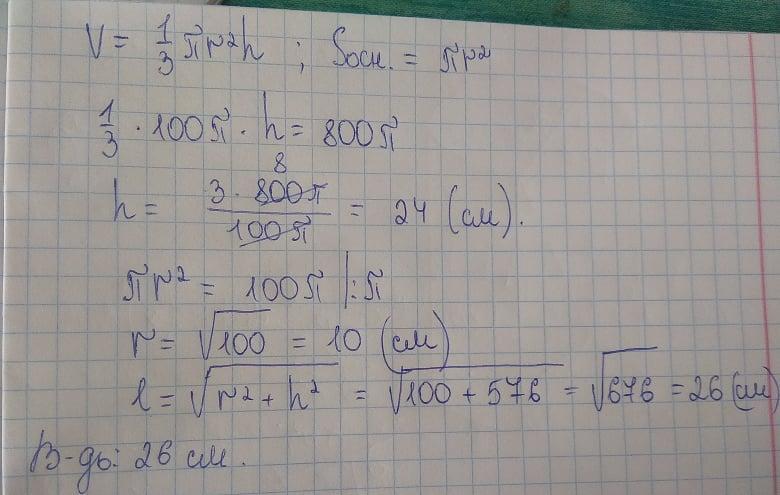 V = 1/3 πr²h ; Sосн. = πr²
1/3 · 100π · h = 800π
8
h = 3 · 800π / 100π = 24 (см).
πr² = 100π |:π
r = √100 = 10 (см)
l = √r² + h² = √100 + 576 = √676 = 26 (см)
В-дь: 26 см.